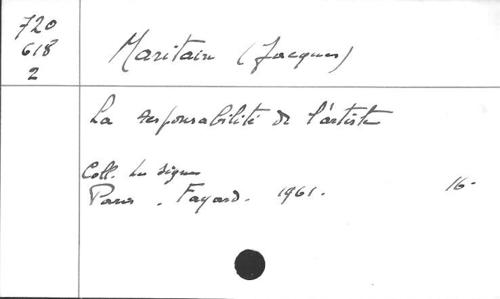 720
618
2
Maritain (Jacques)
La responsabilité de l'artiste
Coll. Les signes
Paris. Fayard. 1961.
16-